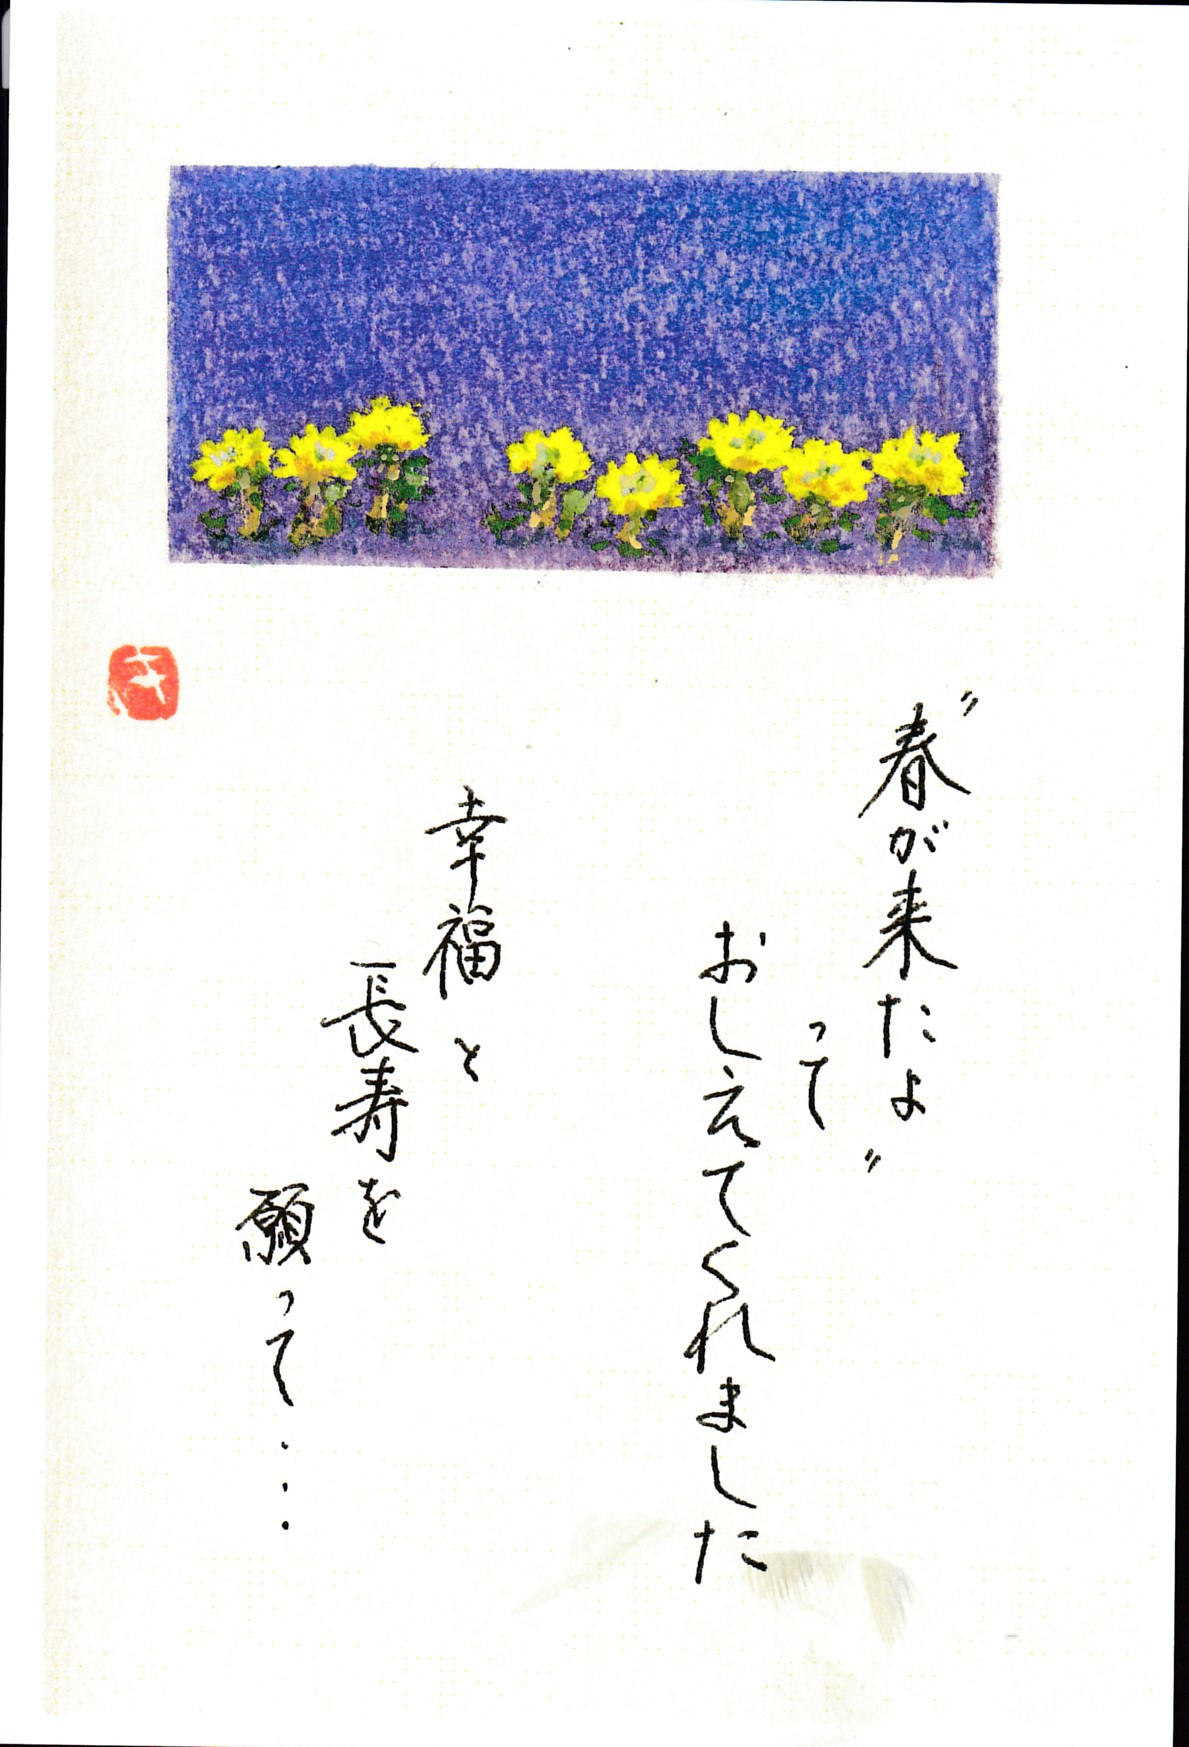 〝春が来たよ〟
って
おしえてくれました
幸福と
長寿を
願って・・・